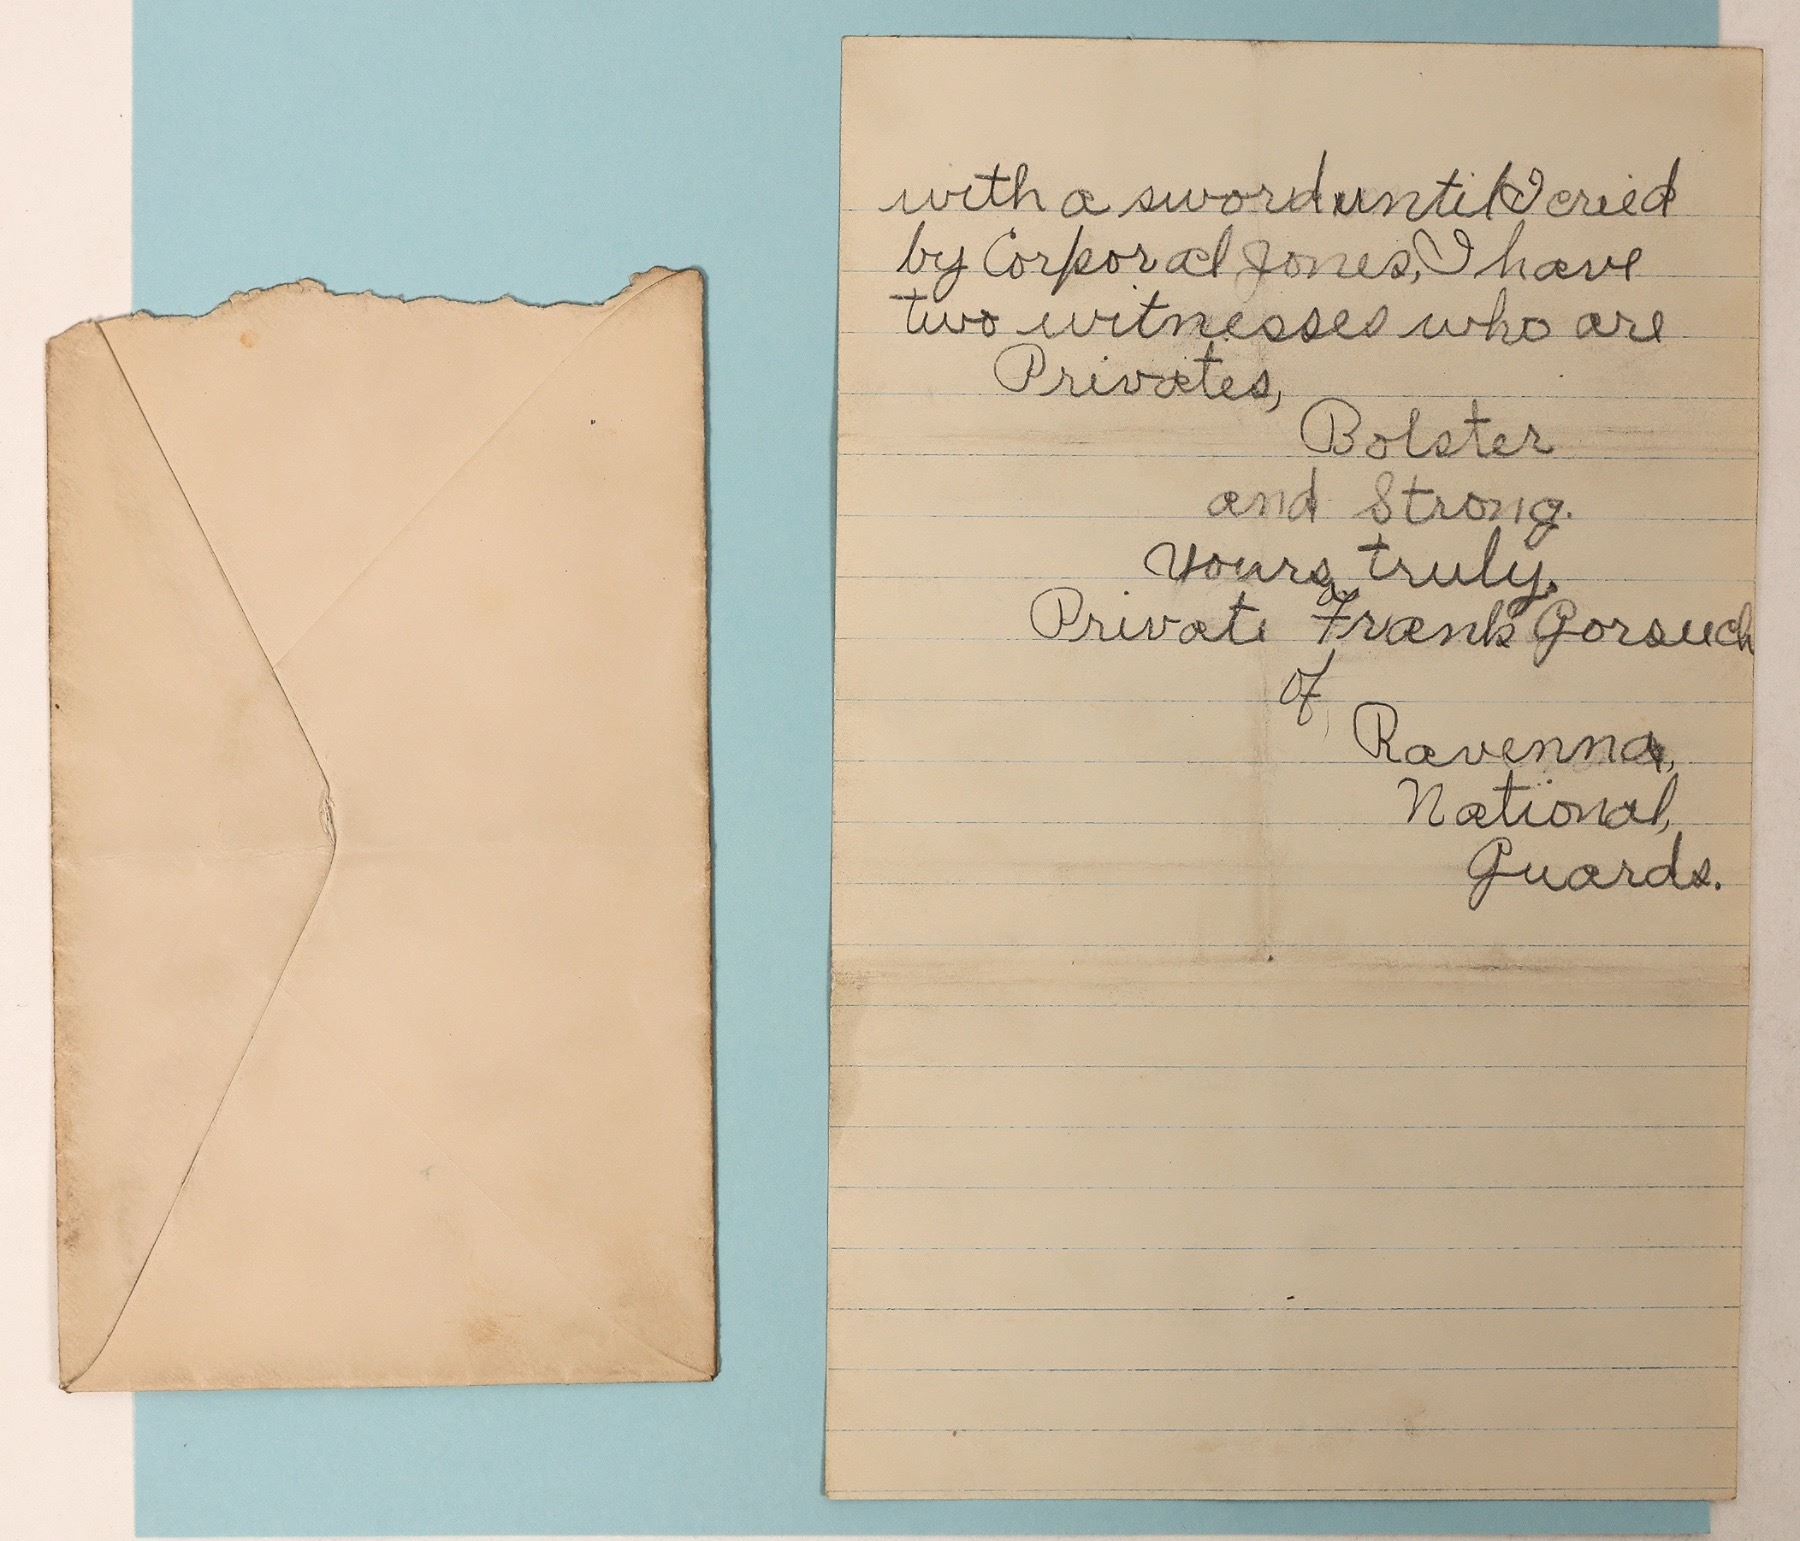 with a sword until I cried
by Corporal Jones, I have
two witnesses who are
Privates,
Bolster
and Strong.
Yours truly,
Private Frank Gorsuch
of
Ravenna,
National,
Guards.